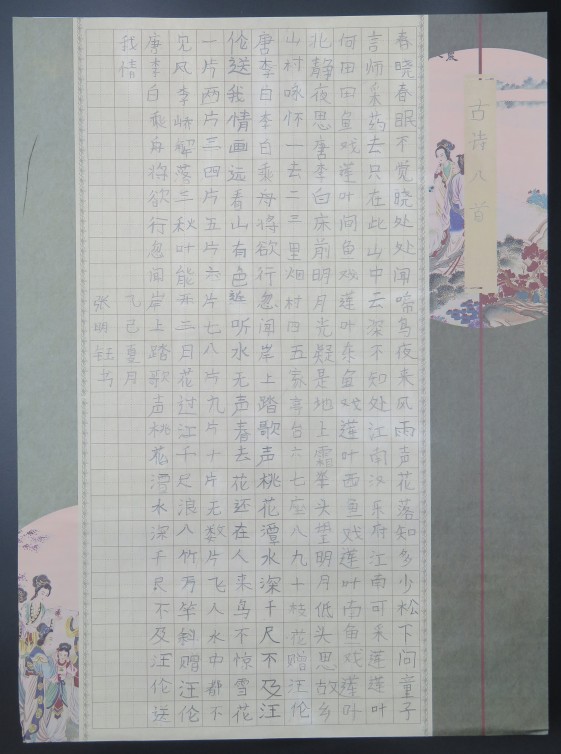 古诗八首
春晓春眠不觉晓处处闻啼鸟夜来风雨声花落知多少松下问童子
言师采药去只在此山中云深不知处江南汉乐府江南可采莲莲叶
何田田鱼戏莲叶间鱼戏莲叶东鱼戏莲叶西鱼戏莲叶南鱼戏莲叶
北静夜思唐李白床前明月光疑是地上霜举头望明月低头思故乡
山村咏怀一去二三里烟村四五家亭台六七座八九十枝花赠汪伦
唐李白李白乘舟将欲行忽闻岸上踏歌声桃花潭水深千尺不及汪
伦送我情画远看山有色近听水无声春去花还在人来鸟不惊雪花
一片两片三四片五片六片七八片九片十片无数片飞入水中都不
见风李峤解落三秋叶能开三月花过江千尺浪入竹万竿斜赠汪伦
唐李白乘舟将欲行忽闻岸上踏歌声桃花潭水深千尺不及汪伦送
我情
乙巳夏月
张明钰书